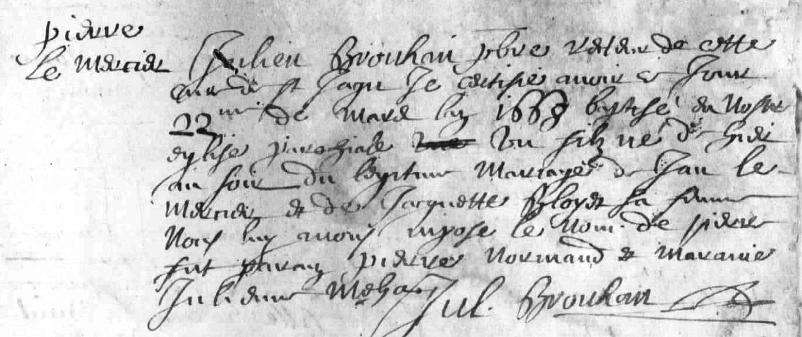 pierre
le mercier
Julien Brouhan pbre recteur de cette
de st Jagu Je certifie avoir ce Jour
22me de mars 1668 baptisé en nostre
eglise parochiale un filz né d'hier
au soir du legitime mariage de Jan le
mercier et de Jacquette sa femme
nous luy avons impose le nom de pierre
fut parain pierre normand et maraine
Julienne
Jul. Brouhan